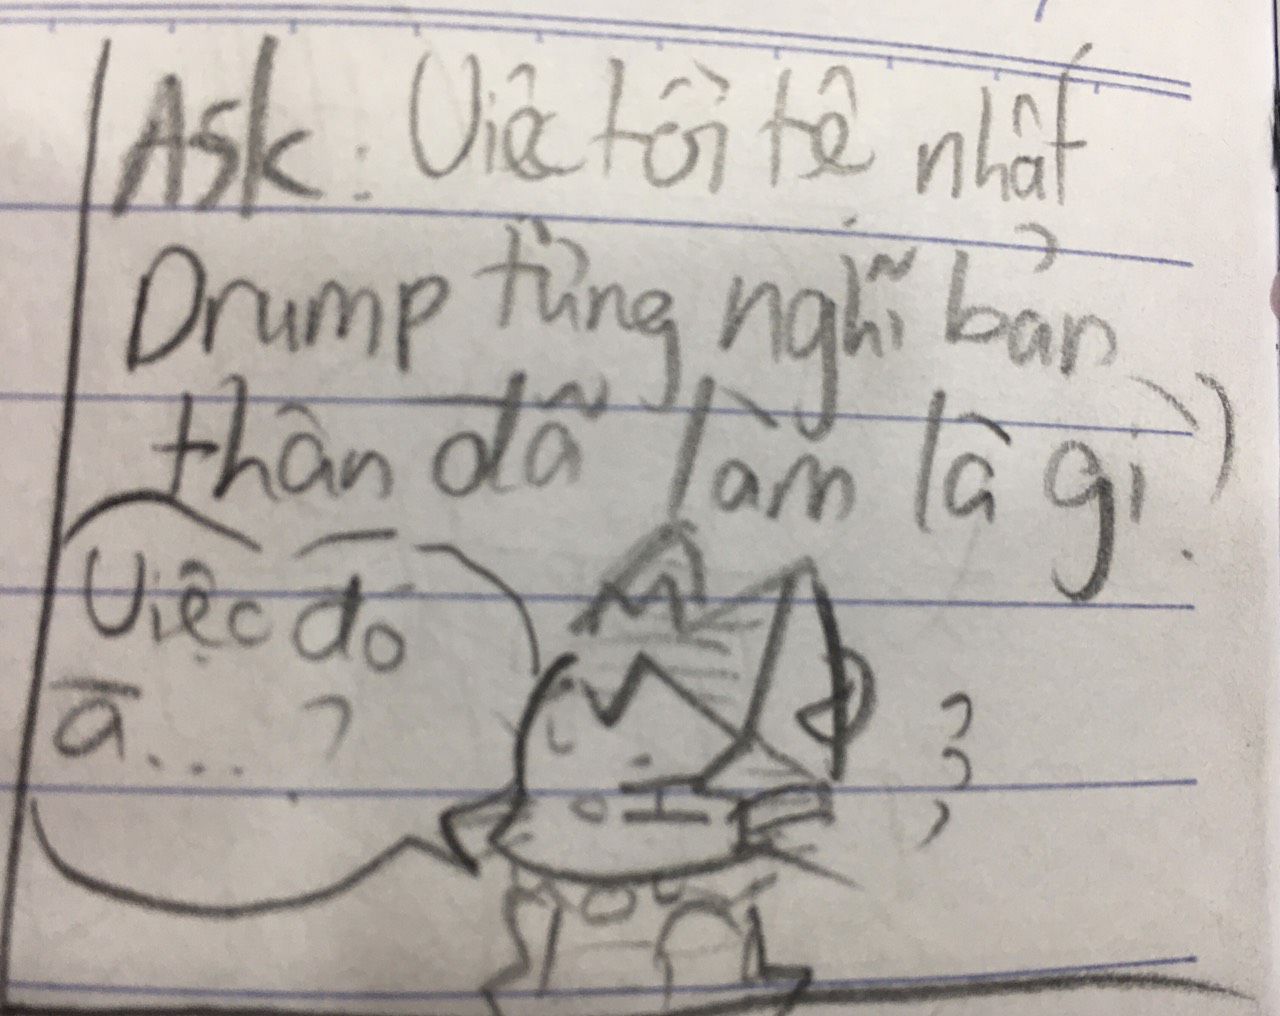 Ask: Việc tồi tệ nhất
Drump từng nghĩ bản
thân đã làm là gì?
Việc đó
à...?